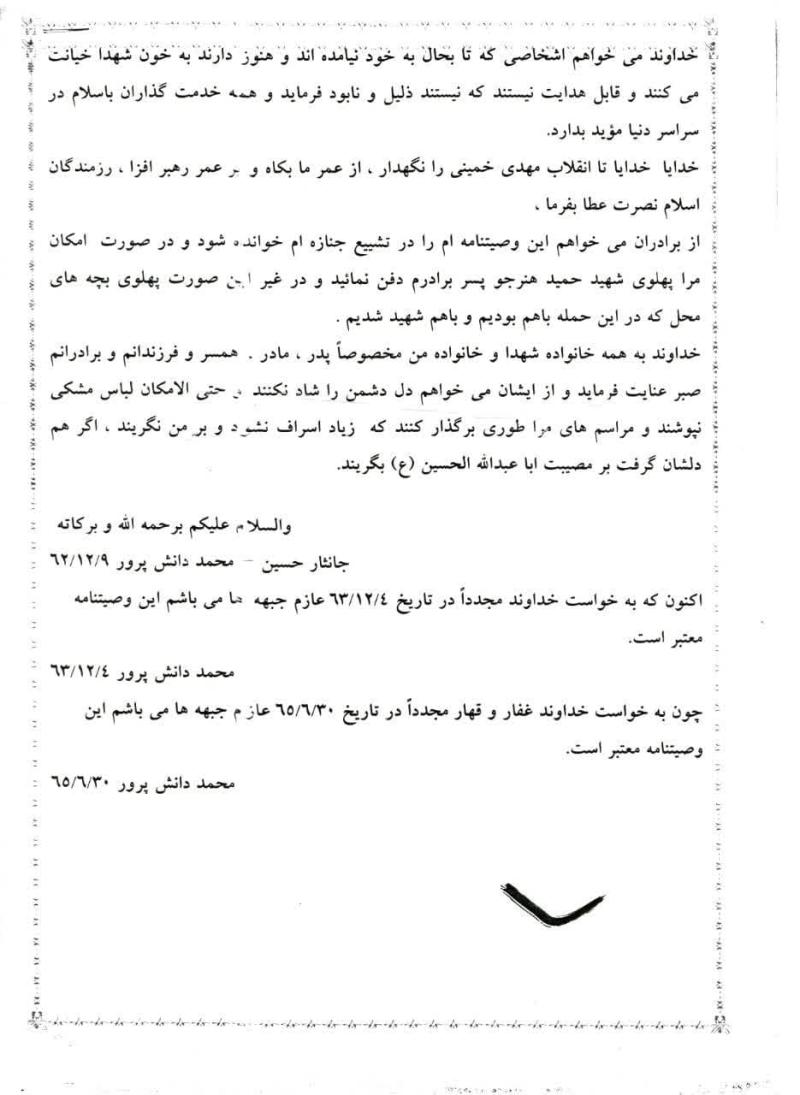 خداوند می خواهم اشخاصی که تا بحال به خود نیامده اند و هنوز دارند به خون شهدا خیانت
می کنند و قابل هدایت نیستند که نیستند ذلیل و نابود فرماید و همه خدمت گذاران باسلام در
سراسر دنیا مؤید بدارد.
خدایا خدایا تا انقلاب مهدی خمینی را نگهدار ، از عمر ما بکاه و بر عمر رهبر افزا ، رزمندگان
اسلام نصرت عطا بفرما ،
از برادران می خواهم این وصیتنامه ام را در تشییع جنازه ام خوانده شود و در صورت امکان
مرا پهلوی شهید حمید هنرجو پسر برادرم دفن نمائید و در غیر این صورت پهلوی بچه های
محل که در این حمله باهم بودیم و باهم شهید شدیم .
خداوند به همه خانواده شهدا و خانواده من مخصوصاً پدر ، مادر . همسر و فرزندانم و برادرانم
صبر عنایت فرماید و از ایشان می خواهم دل دشمن را شاد نکنند و حتی الامکان لباس مشکی
نپوشند و مراسم های مرا طوری برگذار کنند که زیاد اسراف نشود و بر من نگریند ، اگر هم
دلشان گرفت بر مصیبت ابا عبدالله الحسین (ع) بگریند.
والسلام علیکم برحمه الله و برکاته
جانثار حسین – محمد دانش پرور ٦٢/١٢/٩
اکنون که به خواست خداوند مجدداً در تاریخ ٦٣/١٢/٤ عازم جبهه ها می باشم این وصیتنامه
معتبر است.
محمد دانش پرور ٦٣/١٢/٤
چون به خواست خداوند غفار و قهار مجدداً در تاریخ ٦٥/٦/٣٠ عازم جبهه ها می باشم این
وصیتنامه معتبر است.
محمد دانش پرور ٦٥/٦/٣٠